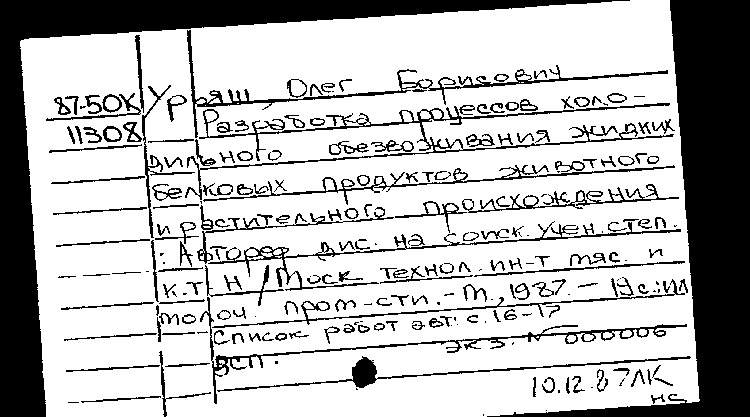 87-5ОК Урьяш, Олег Борисович
11308 Разработка процессов холо-
дильного обезвоживания жидких
белковых продуктов животного
и растительного происхождения
: Автореф. дис. на соиск. учен. степ.
к.т.н / Моск. технол. ин-т мяс. и
молоч. пром-сти. - М., 1987. - 19 с.: ил
Список работ авт: с. 16-17
ВСП. Экз. № 000006
10.12.87 ЛК
нс